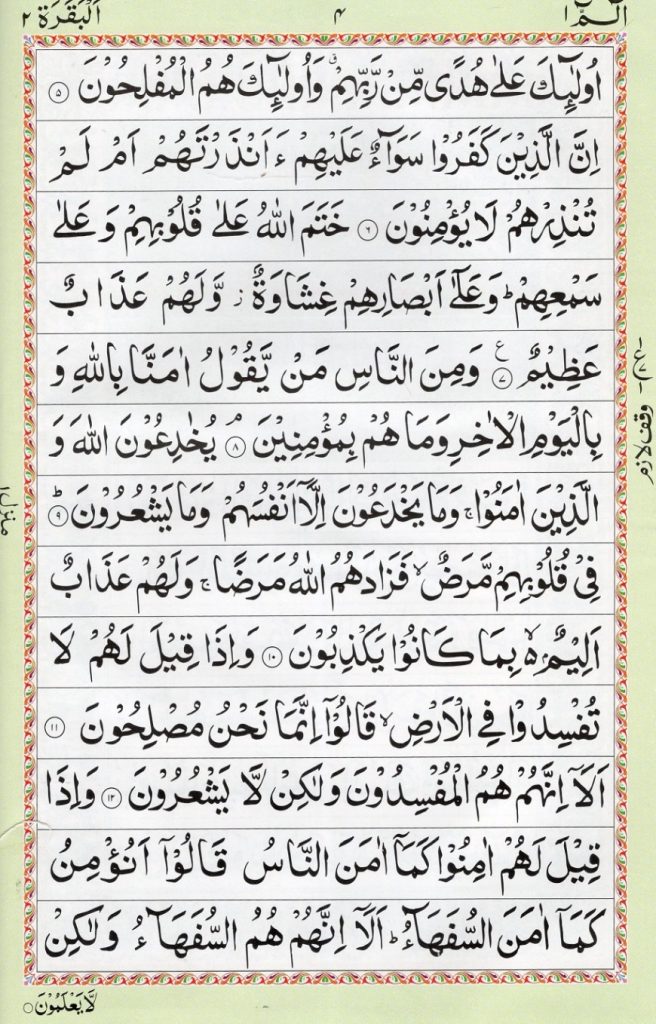 الٓمّٓ ١ ۴ اَلْبَقَرَة ٢
اُولٰٓئِكَ عَلٰى هُدًى مِّنْ رَّبِّهِمْ ۗ وَاُولٰٓئِكَ هُمُ الْمُفْلِحُوْنَ ۝۵
اِنَّ الَّذِيْنَ كَفَرُوْا سَوَآءٌ عَلَيْهِمْ ءَاَنْذَرْتَهُمْ اَمْ لَمْ
تُنْذِرْهُمْ لَا يُؤْمِنُوْنَ ۝۶ خَتَمَ اللّٰهُ عَلٰى قُلُوْبِهِمْ وَعَلٰى
سَمْعِهِمْ ؕ وَعَلٰٓى اَبْصَارِهِمْ غِشَاوَةٌ ز وَّلَهُمْ عَذَابٌ
عَظِيْمٌ ۝۷ ع وَمِنَ النَّاسِ مَنْ يَّقُوْلُ اٰمَنَّا بِاللّٰهِ وَ
بِالْيَوْمِ الْاٰخِرِ وَمَا هُمْ بِمُؤْمِنِيْنَ ۘ ۝۸ يُخٰدِعُوْنَ اللّٰهَ وَ
الَّذِيْنَ اٰمَنُوْا ۚ وَمَا يَخْدَعُوْنَ اِلَّآ اَنْفُسَهُمْ وَمَا يَشْعُرُوْنَ ؕ ۝۹
فِيْ قُلُوْبِهِمْ مَّرَضٌ ۙ فَزَادَهُمُ اللّٰهُ مَرَضًا ۚ وَلَهُمْ عَذَابٌ
اَلِيْمٌ ۢ ۙ بِمَا كَانُوْا يَكْذِبُوْنَ ۝۱۰ وَاِذَا قِيْلَ لَهُمْ لَا
تُفْسِدُوْا فِى الْاَرْضِ ۙ قَالُوْٓا اِنَّمَا نَحْنُ مُصْلِحُوْنَ ۝۱۱
اَلَآ اِنَّهُمْ هُمُ الْمُفْسِدُوْنَ وَلٰكِنْ لَّا يَشْعُرُوْنَ ۝۱۲ وَاِذَا
قِيْلَ لَهُمْ اٰمِنُوْا كَمَآ اٰمَنَ النَّاسُ قَالُوْٓا اَنُؤْمِنُ
كَمَآ اٰمَنَ السُّفَهَآءُ ؕ اَلَآ اِنَّهُمْ هُمُ السُّفَهَآءُ وَلٰكِنْ
لَّا يَعْلَمُوْنَ
وقف لازم
منزل ١